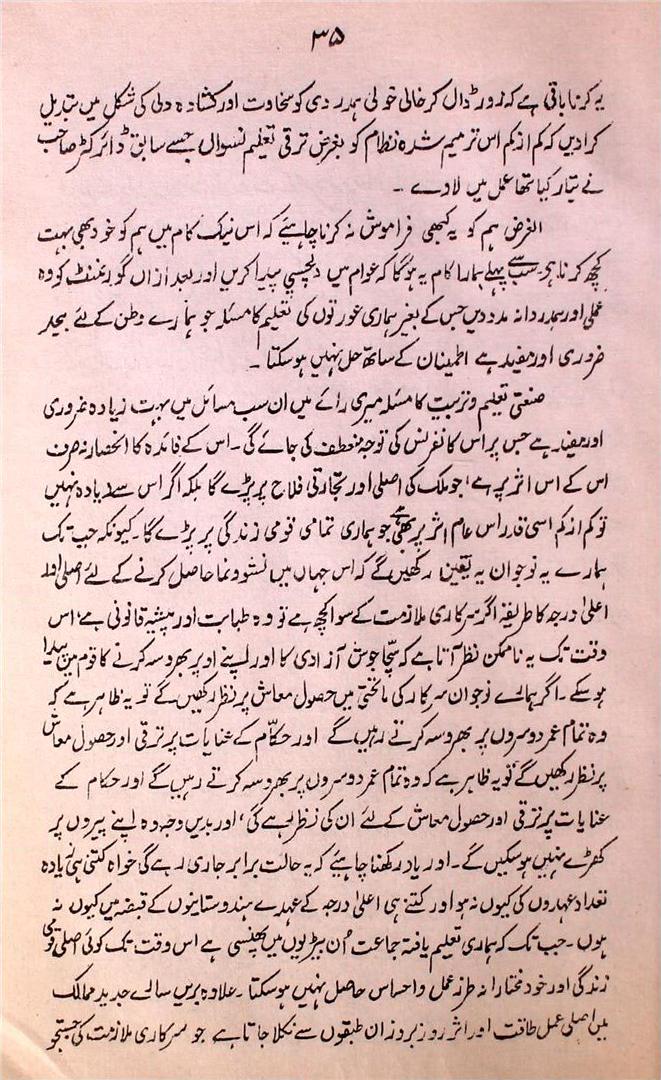 ۳۵
یہ کرنا باقی ہے کہ زور ڈال کر خالی خولی ہمدردی کو سخاوت اور کشادہ دلی کی شکل میں تبدیل
کرا دیں کہ کم از کم اس ترمیم شدہ نظام کو بغرض ترقی تعلیم نسواں جسے سابق ڈائرکٹر صاحب
نے تیار کیا تھا عمل میں لاوے ۔۔
الغرض ہم کو یہ کبھی فراموش نہ کرنا چاہیئے کہ اس نیک کام میں ہم کو خود بھی بہت
کچھ کرنا ہو۔ سب سے پہلے ہمارا کام یہ ہوگا کہ عوام میں دلچسپی پیدا کریں اور بعد ازاں گورنمنٹ کو وہ
عملی اور ہمدردانہ مدد دیں جس کے بغیر ہماری عورتوں کی تعلیم کا مسئلہ جو ہمارے وطن کے لئے بیحد
ضروری اور مفید ہے اطمینان کے ساتھ حل نہیں ہو سکتا ۔
صنعتی تعلیم و تربیت کا مسئلہ میری رائے میں ان سب مسائل میں بہت زیادہ ضروری
اور مفید ہے جس پر اس کانفرنس کی توجہ منعطف کی جائے گی۔ اس کے فائدہ کا انحصار نہ صرف
اس کے اس اثر پر ہے، جو ملک کی اصلی اور تجارتی فلاح پر پڑے گا بلکہ اگر اس سے زیادہ نہیں
تو کم از کم اسی قدر اس عام اثر پر بھی ہے جو ہماری تمامی قومی زندگی پر پڑے گا۔ کیونکہ جب تک
ہمارے یہ نوجوان یہ یقین رکھیں گے کہ اس جہاں میں نشوونما حاصل کرنے کے لئے اصلی اور
اعلیٰ درجہ کا طریقہ اگر سرکاری ملازمت کے سوا کچھ ہے تو وہ طبابت اور پیشہ قانونی ہے، اس
وقت تک یہ ناممکن نظر آتا ہے کہ سچا جوش آزادی کا اور اپنے اوپر بھروسہ کرنے کا قوم میں پیدا
ہو سکے ۔ اگر ہمارے نوجوان سرکار کی ماتحتی میں حصول معاش پر نظر رکھیں گے تو یہ ظاہر ہے کہ
وہ تمام عمر دوسروں پر بھروسہ کرتے رہیں گے اور حکام کے عنایات پر ترقی اور حصول معاش
پر نظر رکھیں گے تو یہ ظاہر ہے کہ وہ تمام عمر دوسروں پر بھروسہ کرتے رہیں گے اور حکام کے
عنایات پر ترقی اور حصول معاش کے لئے ان کی نظر رہے گی، اور بدیں وجہ وہ اپنے پیروں پر
کھڑے نہیں ہو سکیں گے۔ اور یاد رکھنا چاہئے کہ یہ حالت برابر جاری رہے گی خواہ کتنی ہی زیادہ
تعداد عہدوں کی کیوں نہ ہو اور کتنے ہی اعلیٰ درجہ کے عہدے ہندوستانیوں کے قبضہ میں کیوں نہ
ہوں۔ جب تک کہ ہماری تعلیم یافتہ جماعت اُن بیڑیوں میں پھنسی ہے اس وقت تک کوئی اصلی قومی
زندگی اور خود مختارانہ طرز عمل و احساس حاصل نہیں ہو سکتا ۔ علاوہ بریں سارے جدید ممالک
میں اصلی عمل طاقت اور اثر روز بروز ان طبقوں سے نکلا جاتا ہے جو سرکاری ملازمت کی جستجو